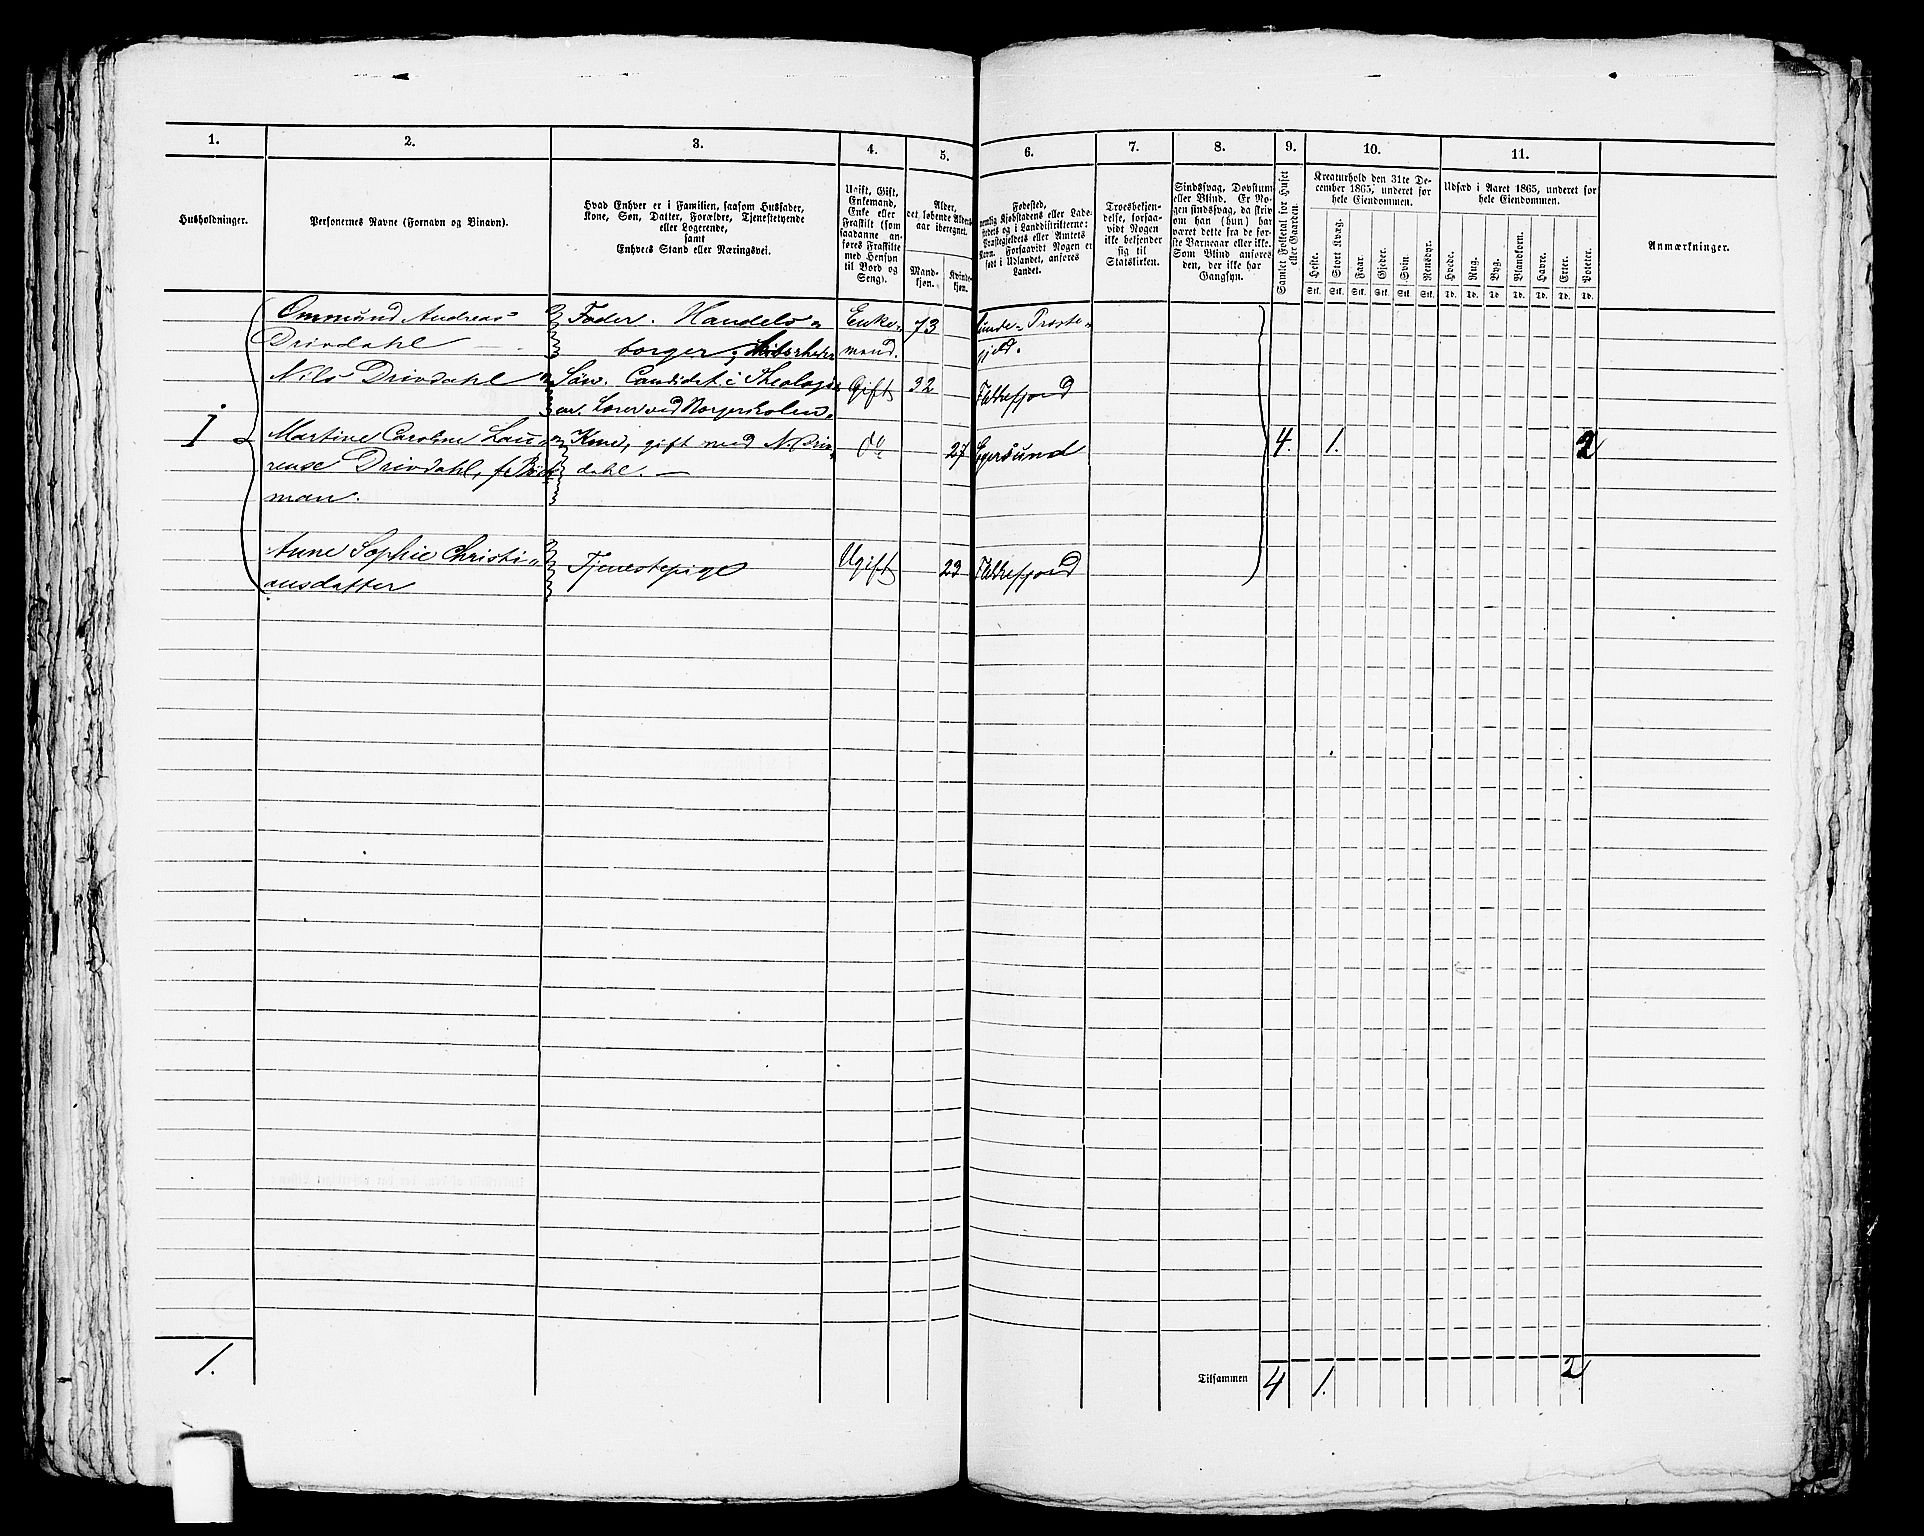 1.
2.
3.
4.
5.
6.
7.
8.
9.
10.
11.
Husholdninger.
Personernes Navne (Fornavn og Binavn).
Hvad Enhver er i Familien, saasom Husfader,
Kone, Søn, Datter, Forældre, Tjenestetyende
eller Logerende,
samt
Enhvers Stand eller Næringsvei.
Ugift, Gift,
Enkemand,
Enke eller
Fraskilt (som
saadanne an-
føres Fraskilte
med Hensyn
til Bord og
Seng).
Alder,
det løbende Alders-
aar iberegnet.
Mand-
kjøn.
Kvinde-
kjøn.
Fødested,
nemlig Kjøbstadens eller Lade-
stedets og i Landdistrikterne:
Præstegjeldets eller Amtets
Navn. Forsaavidt Nogen er
født i Udlandet, anføres
Landet.
Troesbekjen-
delse, forsaa-
vidt Nogen
ikke bekjender
sig til
Statskirken.
Sindssvag, Døvstum
eller Blind. Er No-
gen sindssvag, da skriv
om han (hun) har
været dette fra de før-
ste Barneaar eller ikke.
Som Blind anføres
den, der ikke har
Gangsyn.
Samlet Folketal for Huset
eller Gaarden.
Kreaturhold den 31te De-
cember 1865, underet for
hele Eiendommen.
Heste.
Stort Kvæg.
Faar.
Gjeder.
Svin.
Rensdyr.
Stk. Stk. Stk. Stk. Stk. Stk.
Udsæd i Aaret 1865, underet for
hele Eiendommen.
Hvede.
Rug.
Byg.
Blandkorn.
Havre.
Erter.
Poteter.
Td. Td. Td. Td. Td. Td. Td.
Anmærkninger.
Ommund Andreas Fader. Handels- Enke- 73 Præste-
Drivdahl borger, mand. gjeld.
Nils Drivdahl Søn. Candidat i Theologi- Gift 32 Flekkefjord
en. Lærer ved Borgerskolen.
1 Martine Caroline Lau- Kone, gift med N. Driv- do 27 Egersund 4. 1. 2
rense Drivdahl, f. dahl. —
man.
Anne Sophie Christi- Tjenestepige Ugift 22 Flekkefjord
ansdatter
1.
Tilsammen 4 1. 2